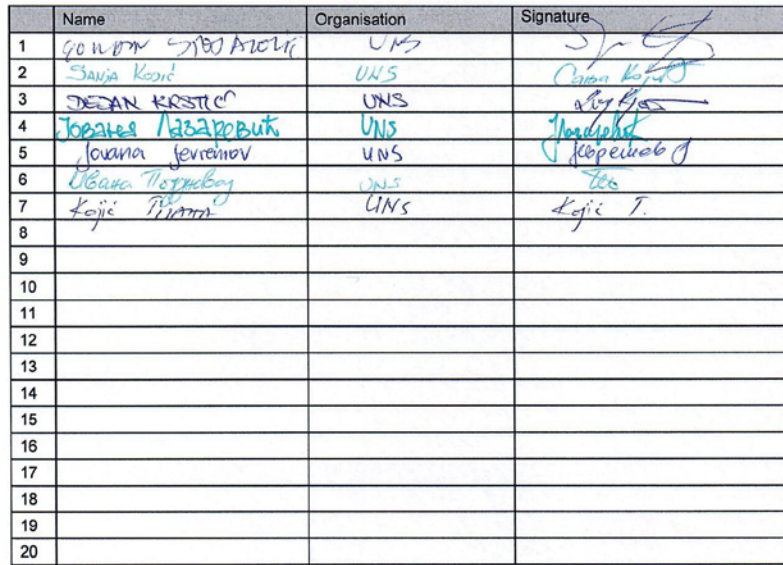 Name Organisation Signature
1 UNS
2 SANJA KOJIĆ UNS Сања Којић
3 DEJAN KRSTIĆ UNS
4 Јована Лазаревић UNS
5 Jovana Jevremov UNS Јевремов Ј
6 Ивана UNS
7 Kojić Тијана UNS Kojić T.
8
9
10
11
12
13
14
15
16
17
18
19
20